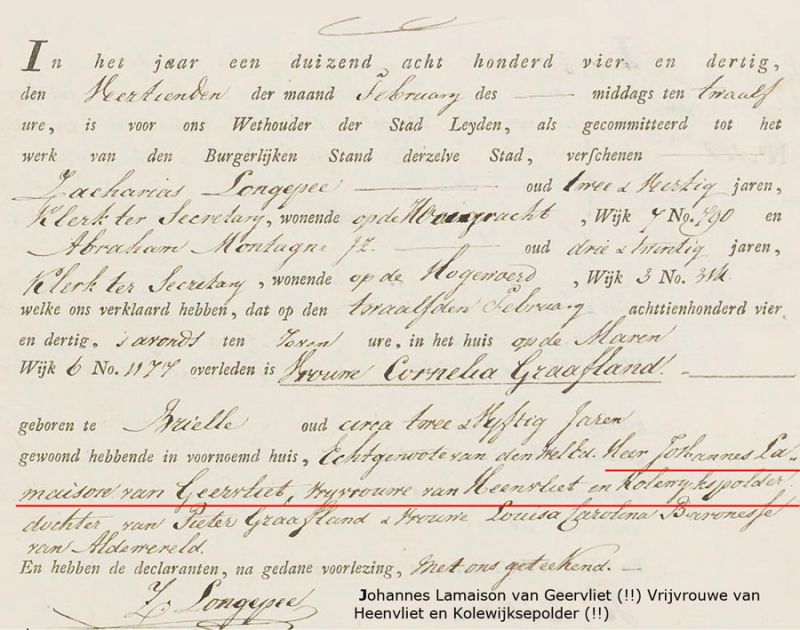 In het jaar een duizend acht honderd vier en dertig,
den Veertienden der maand February des — middags ten twaalf
ure, is voor ons Wethouder der Stad Leyden, als gecommitteerd tot het
werk van den Burgerlijken Stand derzelve Stad, verschenen
Zacharias Longepee — oud twee & Veertig jaren,
Klerk ter Secretary, wonende op de Hooigracht, Wijk 7 No. 790 en
Abraham Montagne Jz. — oud drie & twintig jaren,
Klerk ter Secretary, wonende op de Hogewoerd, Wijk 3 No. 314
welke ons verklaard hebben, dat op den twaalfden February achttienhonderd vier
en dertig, s avonds ten Zeven ure, in het huis op de Maren
Wijk 6 No. 1177 overleden is Vrouwe Cornelia Graafland. —
geboren te Brielle oud circa twee & Vyftig Jaren
gewoond hebbende in voornoemd huis, Echtgenote van den Heer Johannes La-
maison van Geervliet, Vryvrouwe van Heenvliet en Kolewykspolder.
dochter van Pieter Graafland & Vrouwe Louisa Carolina Baronesse
van Aldewereld.
En hebben de declaranten, na gedane voorlezing, Met ons geteekend. —
Z Longepee
Johannes Lamaison van Geervliet (!!) Vrijvrouwe van
Heenvliet en Kolewijksepolder (!!)